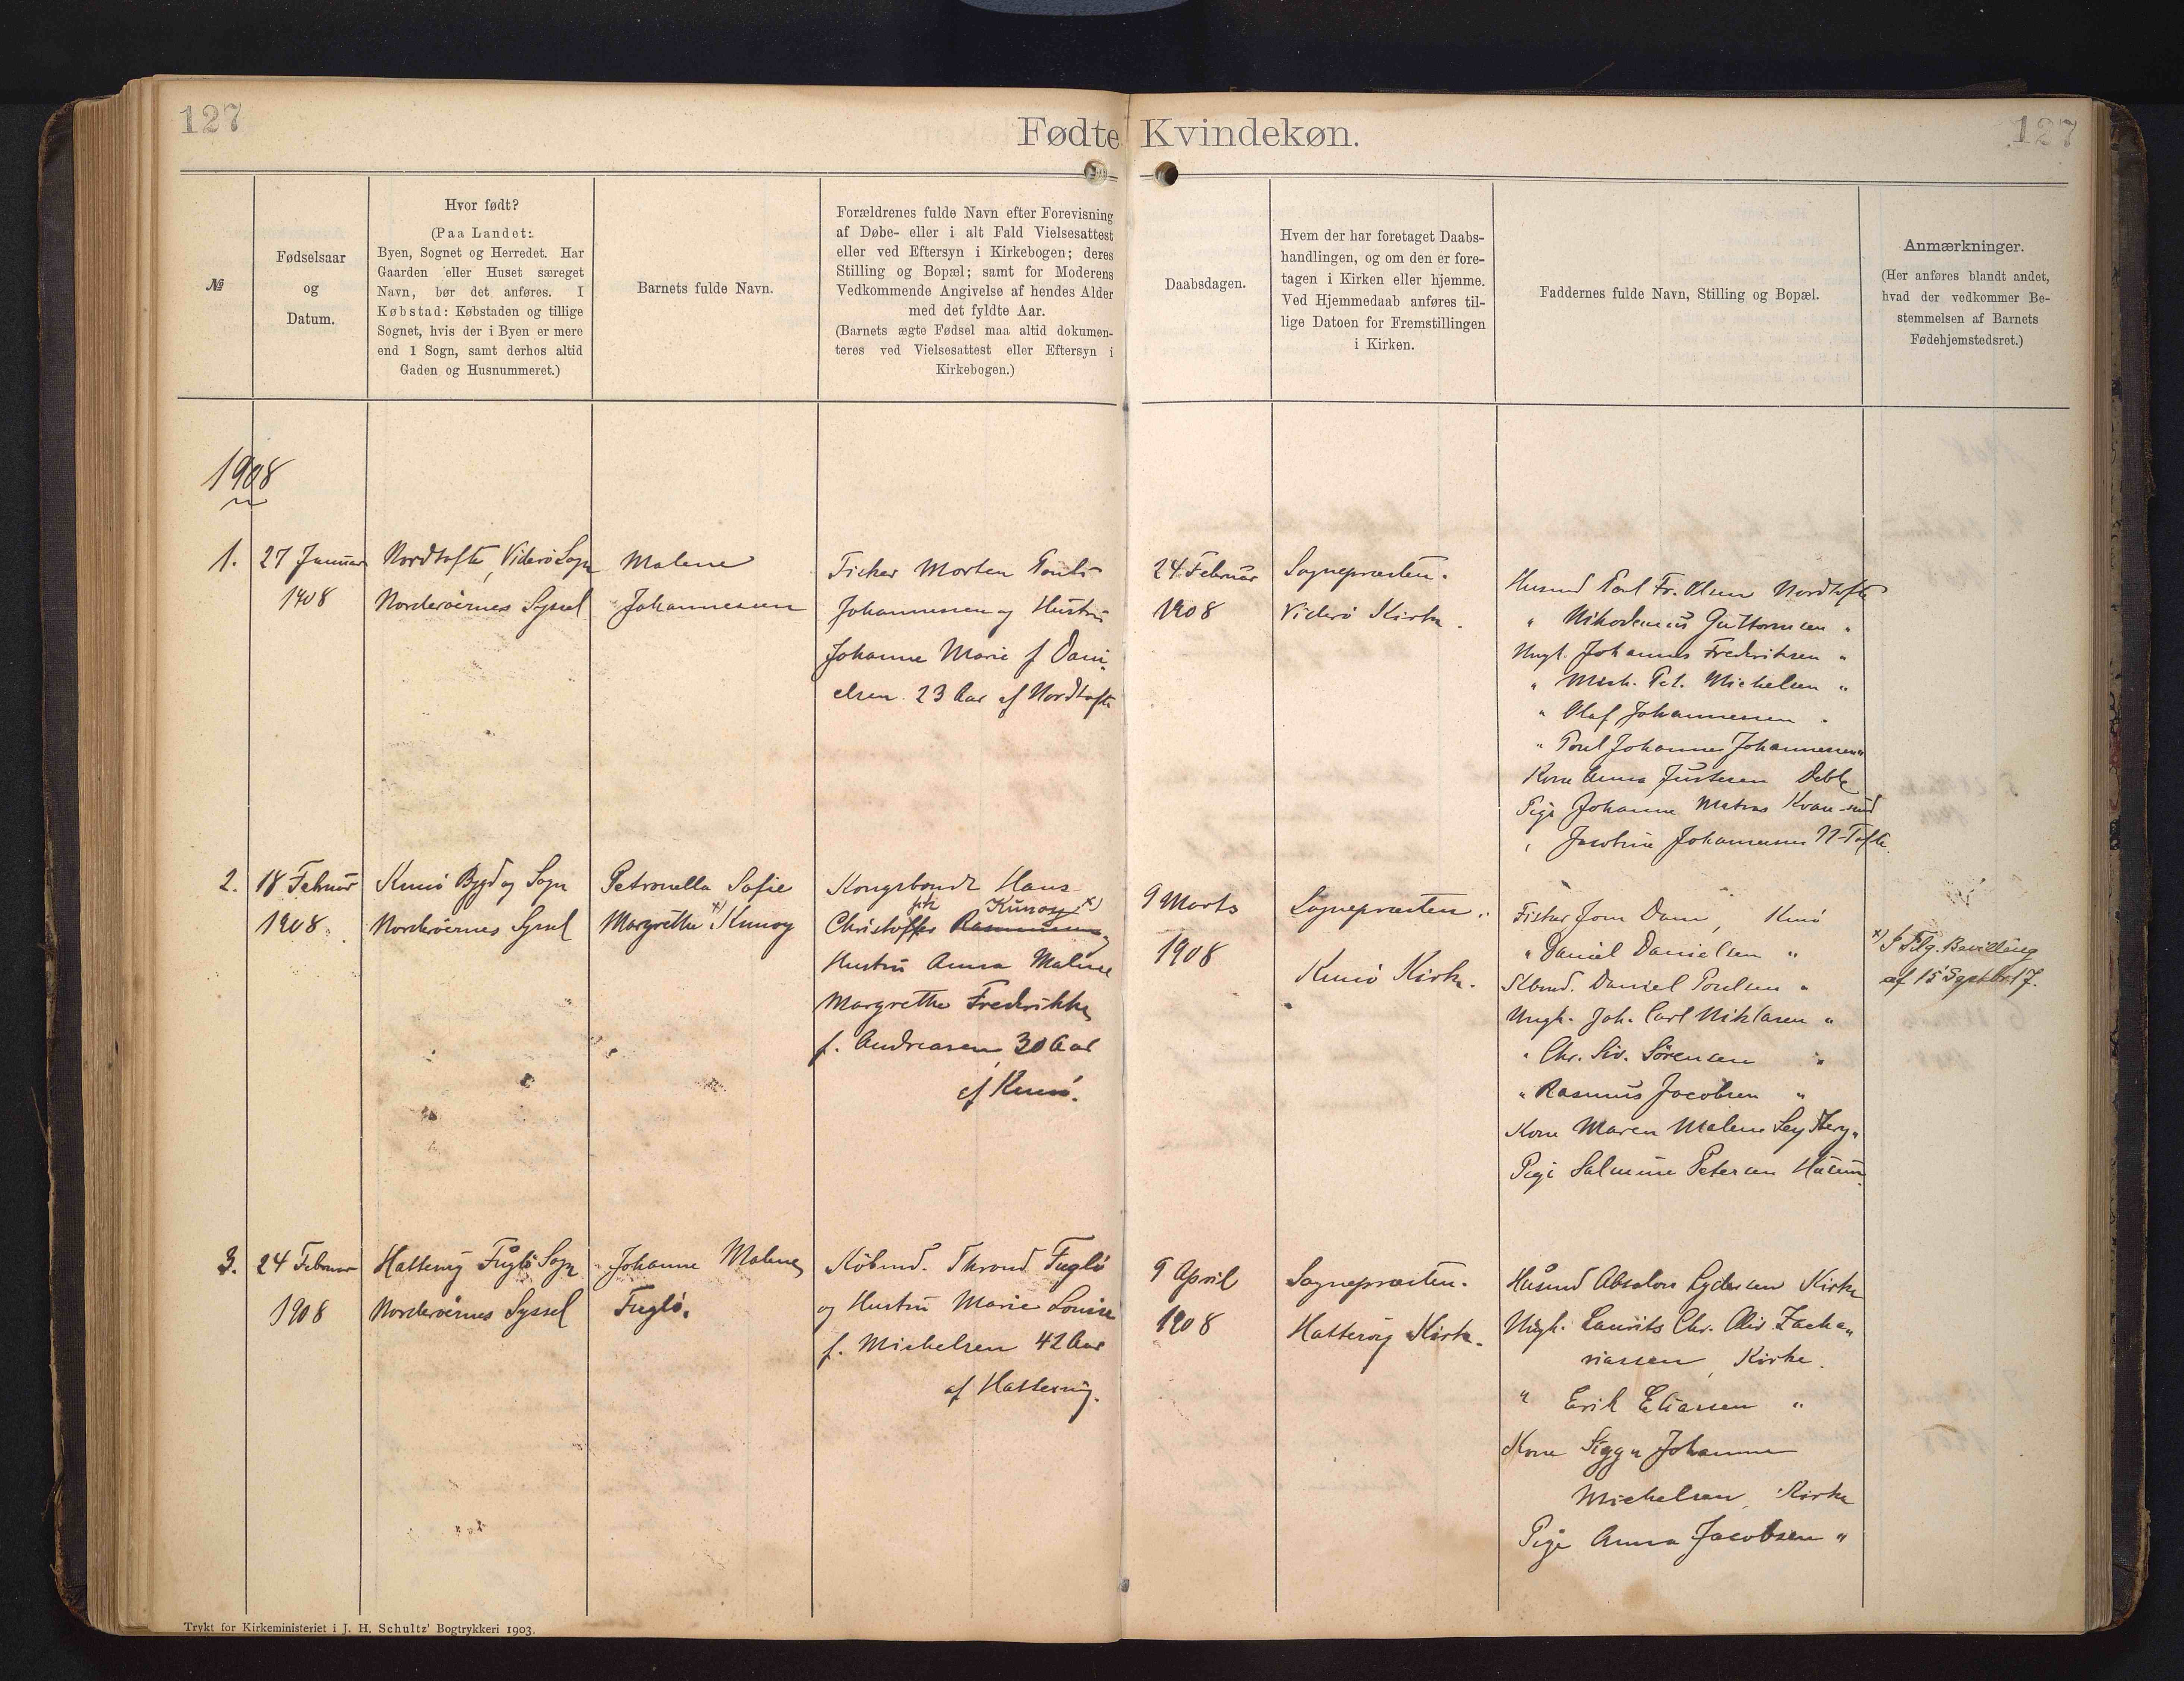 127
127
Fødte Kvindekøn.
№
Fødselsaar
og
Datum.
Hvor født?
(Paa Landet:
Byen, Sognet og Herredet. Har
Gaarden eller Huset særeget
Navn, bør det anføres. I
Købstad: Købstaden og tillige
Sognet, hvis der i Byen er mere
end 1 Sogn, samt derhos altid
Gaden og Husnummeret.)
Barnets fulde Navn.
Forældrenes fulde Navn efter Forevisning
af Døbe- eller i alt Fald Vielsesattest
eller ved Eftersyn i Kirkebogen; deres
Stilling og Bopæl; samt for Moderens
Vedkommende Angivelse af hendes Alder
med det fyldte Aar.
(Barnets ægte Fødsel maa altid dokumen-
teres ved Vielsesattest eller Eftersyn i
Kirkebogen.)
Daabsdagen.
Hvem der har foretaget Daabs-
handlingen, og om den er fore-
tagen i Kirken eller hjemme.
Ved Hjemmedaab anføres til-
lige Datoen for Fremstillingen
i Kirken.
Faddernes fulde Navn, Stilling og Bopæl.
Anmærkninger.
(Her anføres blandt andet,
hvad der vedkommer Be-
stemmelsen af Barnets
Fødehjemstedsret.)
1908
1.
27 Januar
1908
Nordtofte, Viderø Sogn
Norderøernes Syssel
Malene
Johannesen
Fisker Morten Pouli
Johannesen og Hustru
Johanne Marie f Dani
elsen 23 Aar af Nordtofte
24 Februar
1908
Sognepræsten.
Viderø Kirke.
Husmd Poul Fr. Olsen Nordtofte
" Nikodemus Guttormsen "
Ungk. Johannes Frederiksen "
" Mich. Pet. Michelsen "
" Olaf Johannesen "
" Poul Johannes Johannesen "
Kone Anna Justesen Deble
Pige Johanne Matras Kvannesund
" Jacobine Johannesen N-Tofte.
2.
18 Februar
1908.
Kunø Bygd og Sogn
Norderøernes Syssel
Petronella Sofie
Margrethe x) Kunoy
Kongsbonde Hans
Kunoy x)
Christoffer Rasmussen og
Hustru Anna Malene
Margrethe Fredrikke
f. Andreasen, 30 Aar
af Kunø.
9 Marts
1908
Sognepræsten.
Kunø Kirke.
Fisker Joen Dam, Kunø
" Daniel Danielsen "
Daniel Poulsen "
Ungk. Joh. Carl Niklasen "
" Chr. Siv. Sørensen "
" Rasmus Jacobsen "
Kone Maren Malene
Pige Salmine Petersen Husum
x) I Flg. Bevilling
af 15 Septbr 17.
3.
24 Februar
1908
Hattervig Fuglø Sogn
Norderøernes Syssel
Johanne Malene
Fuglø.
Købmd. Thrond Fuglø
og Hustru Marie Louise
f. Michelsen 42 Aar
af Hattervig.
9 April
1908
Sognepræsten.
Hattervig Kirke.
Husmd Absalon Lydersen Kirke
Ungk. Laurits Chr. Oliv. Zacha-
riassen, Kirke.
" Erik Eliassen "
Kone Johanne
Michelsen, Kirke
Pige Anna Jacobsen "
Trykt for Kirkeministeriet i J. H. Schultz' Bogtrykkeri 1903.